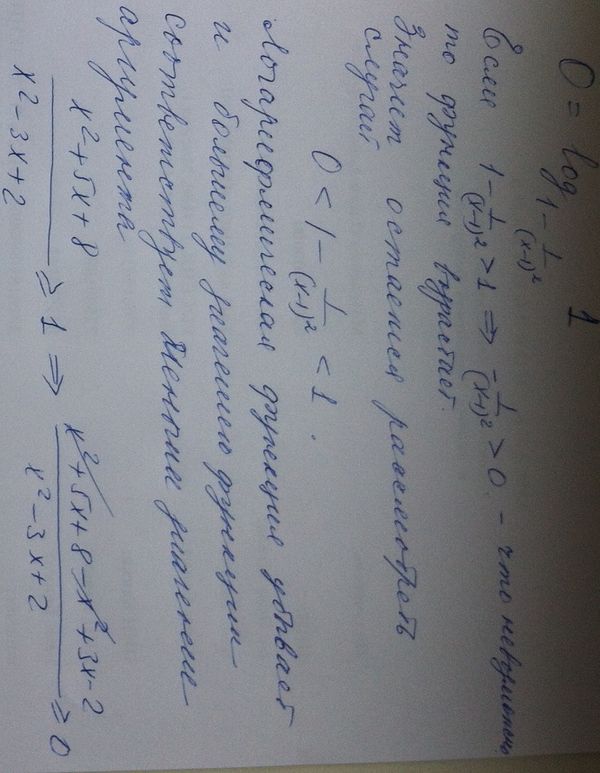 0 = log_{1 - \frac{1}{(x-1)^2}} 1
Если 1 - \frac{1}{(x-1)^2} > 1 ⇒ -\frac{1}{(x-1)^2} > 0 - что невозможно
то функция возрастает.
Значит остаётся рассмотреть
случай
0 < 1 - \frac{1}{(x-1)^2} < 1.
Логарифмическая функция убывает
и большему значению функции
соответствует меньшее значение
аргумента
\frac{x^2 + 5x + 8}{x^2 - 3x + 2} ≥ 1 ⇒ \frac{x^2 + 5x + 8 - x^2 + 3x - 2}{x^2 - 3x + 2} ≥ 0